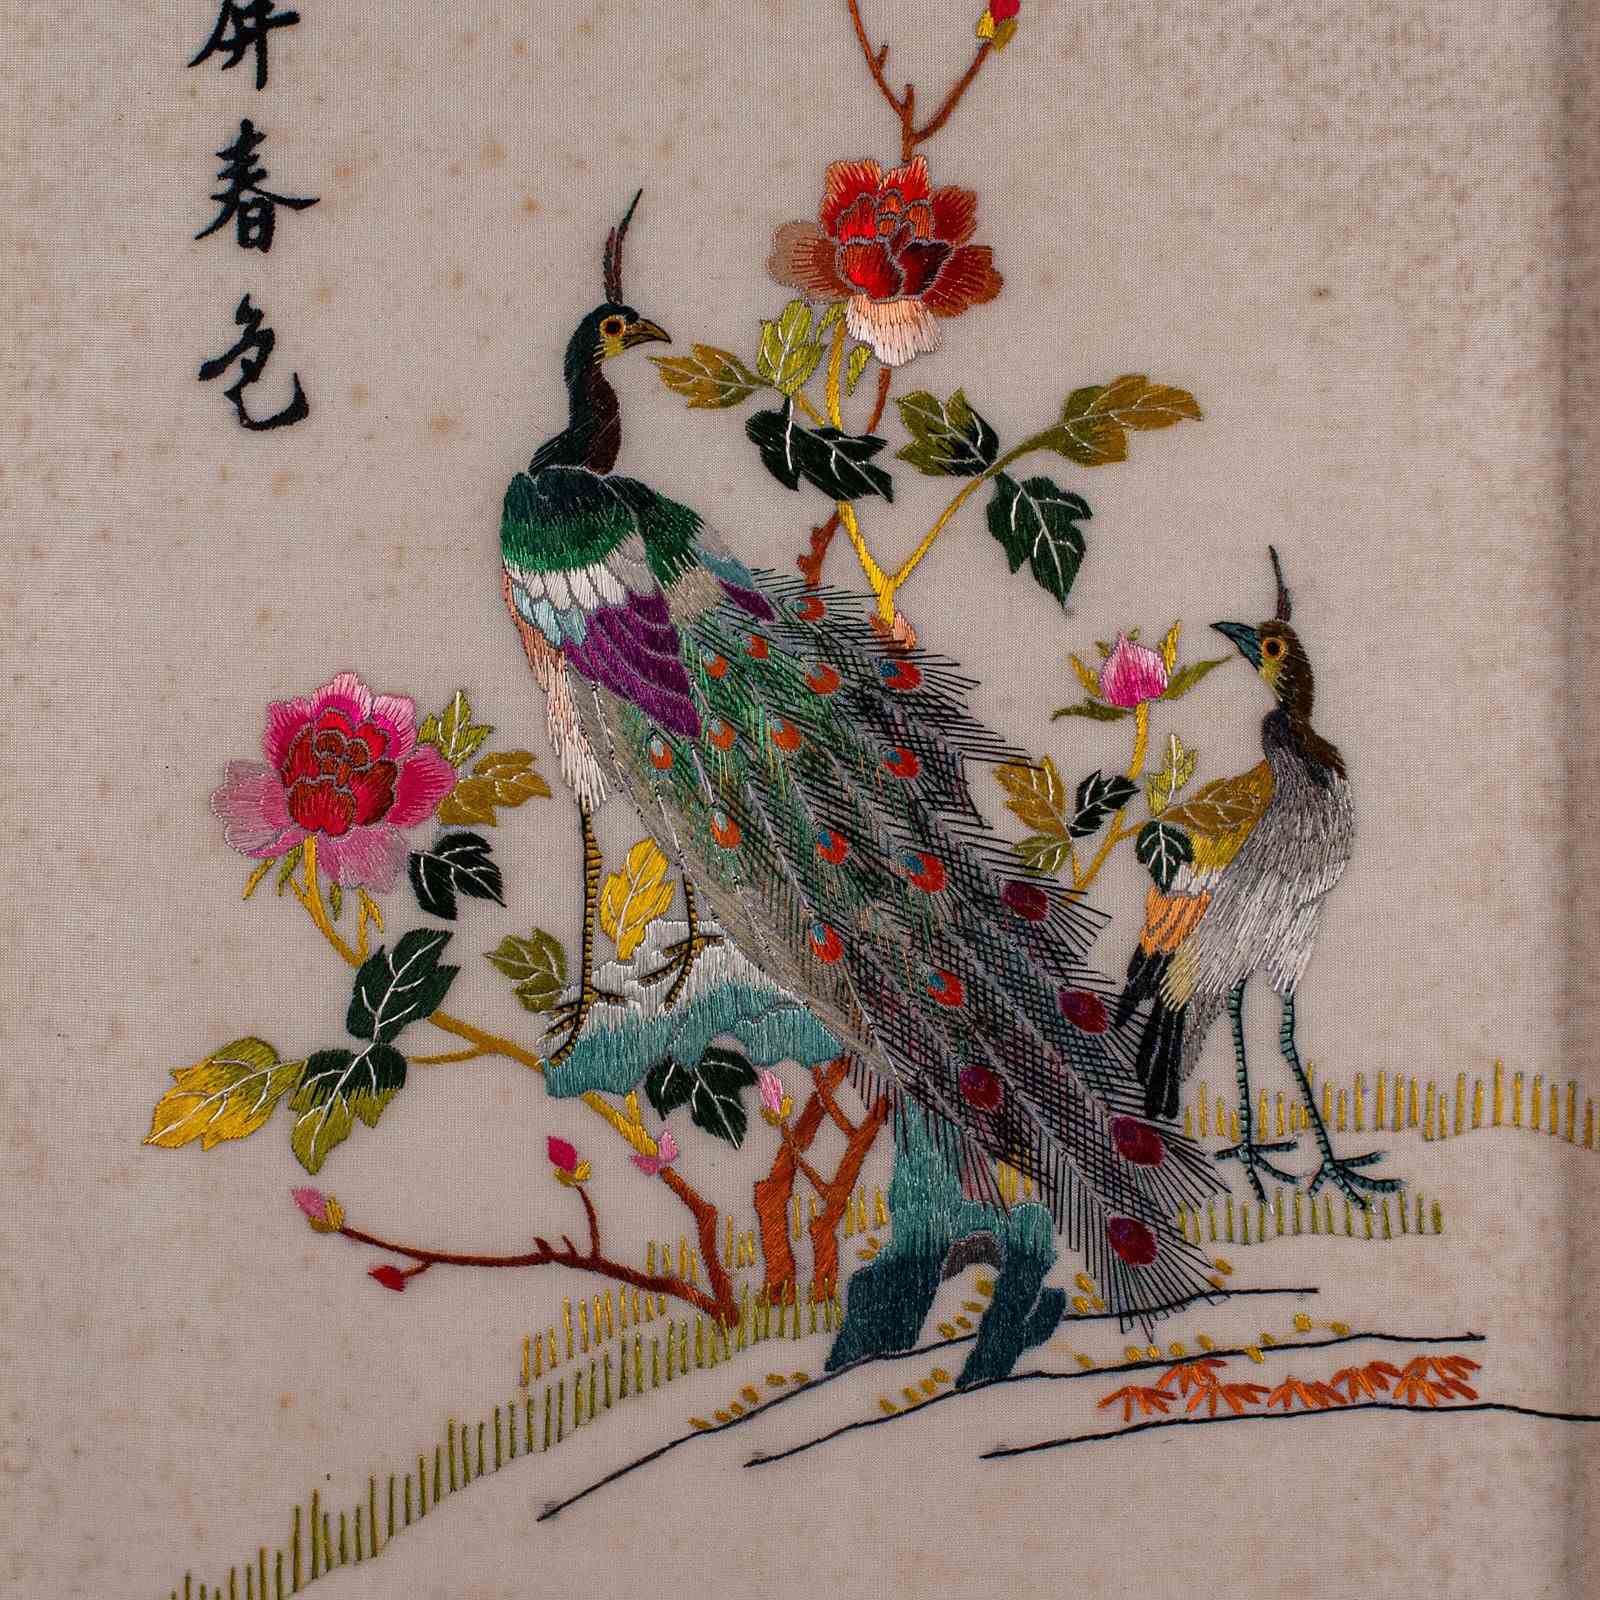 屏春色